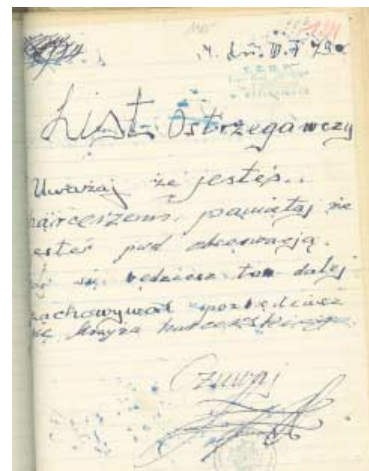 List Ostrzegawczy
Uważaj że jesteś..
harcerzem. pamiętaj że
jesteś pod obserwacją.
się będziesz tak dalej
zachowywał pozbędziesz
się krzyża harcerskiego.
Czuwaj